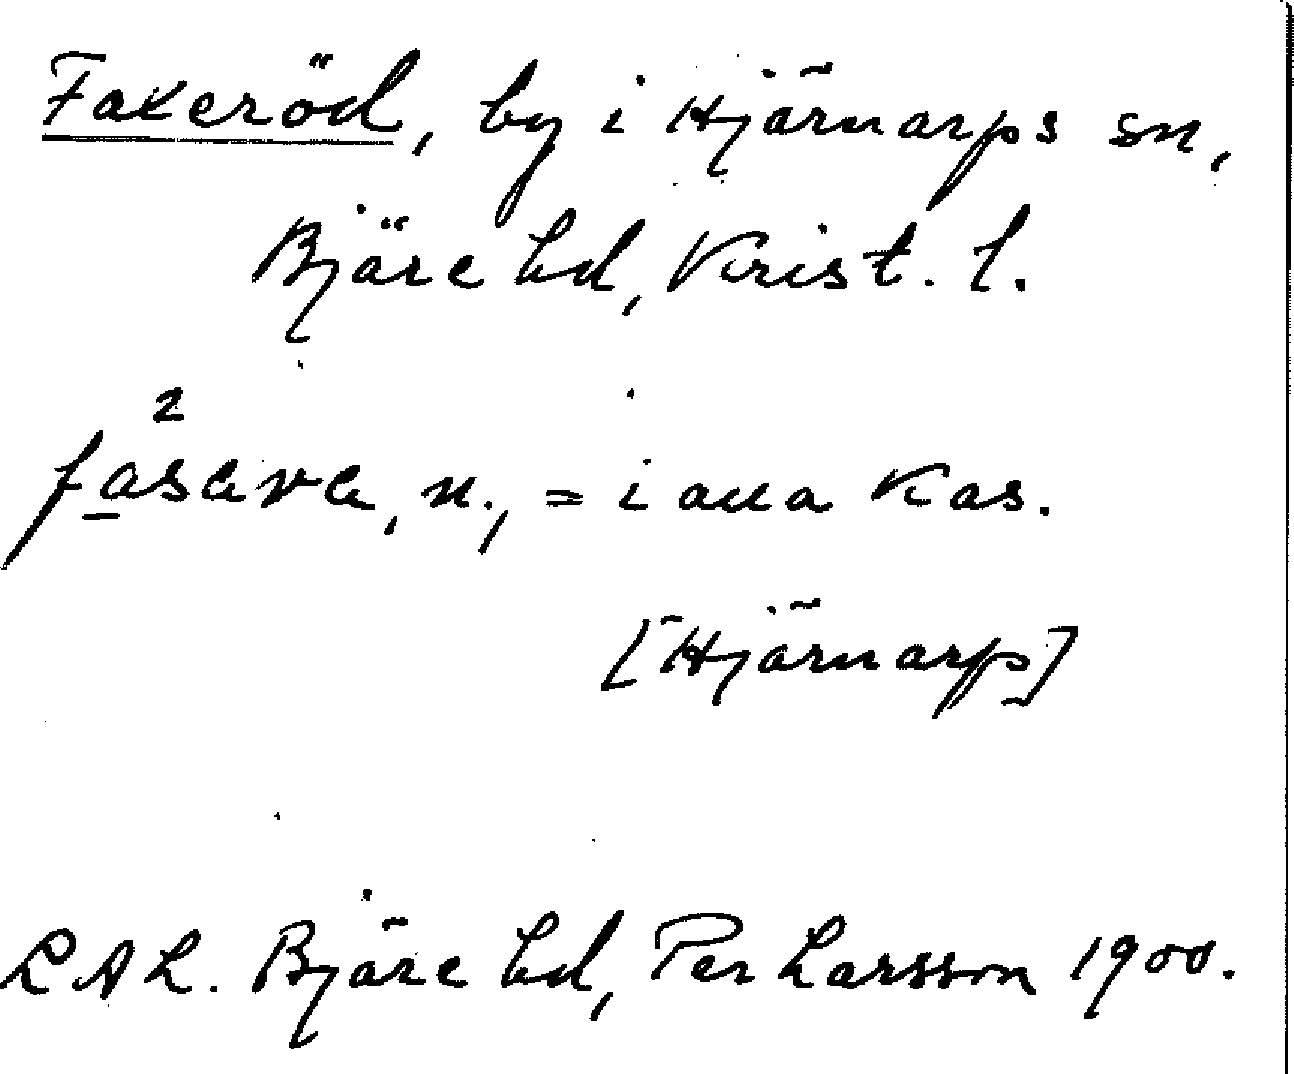 Fakeröd, by i Hjärnarps sn,
Bjäre hd, Krist. l.
2
fasava, n., = i alla kas.
[Hjärnarp]
LAL. Bjäre hd, Per Larsson 1900.